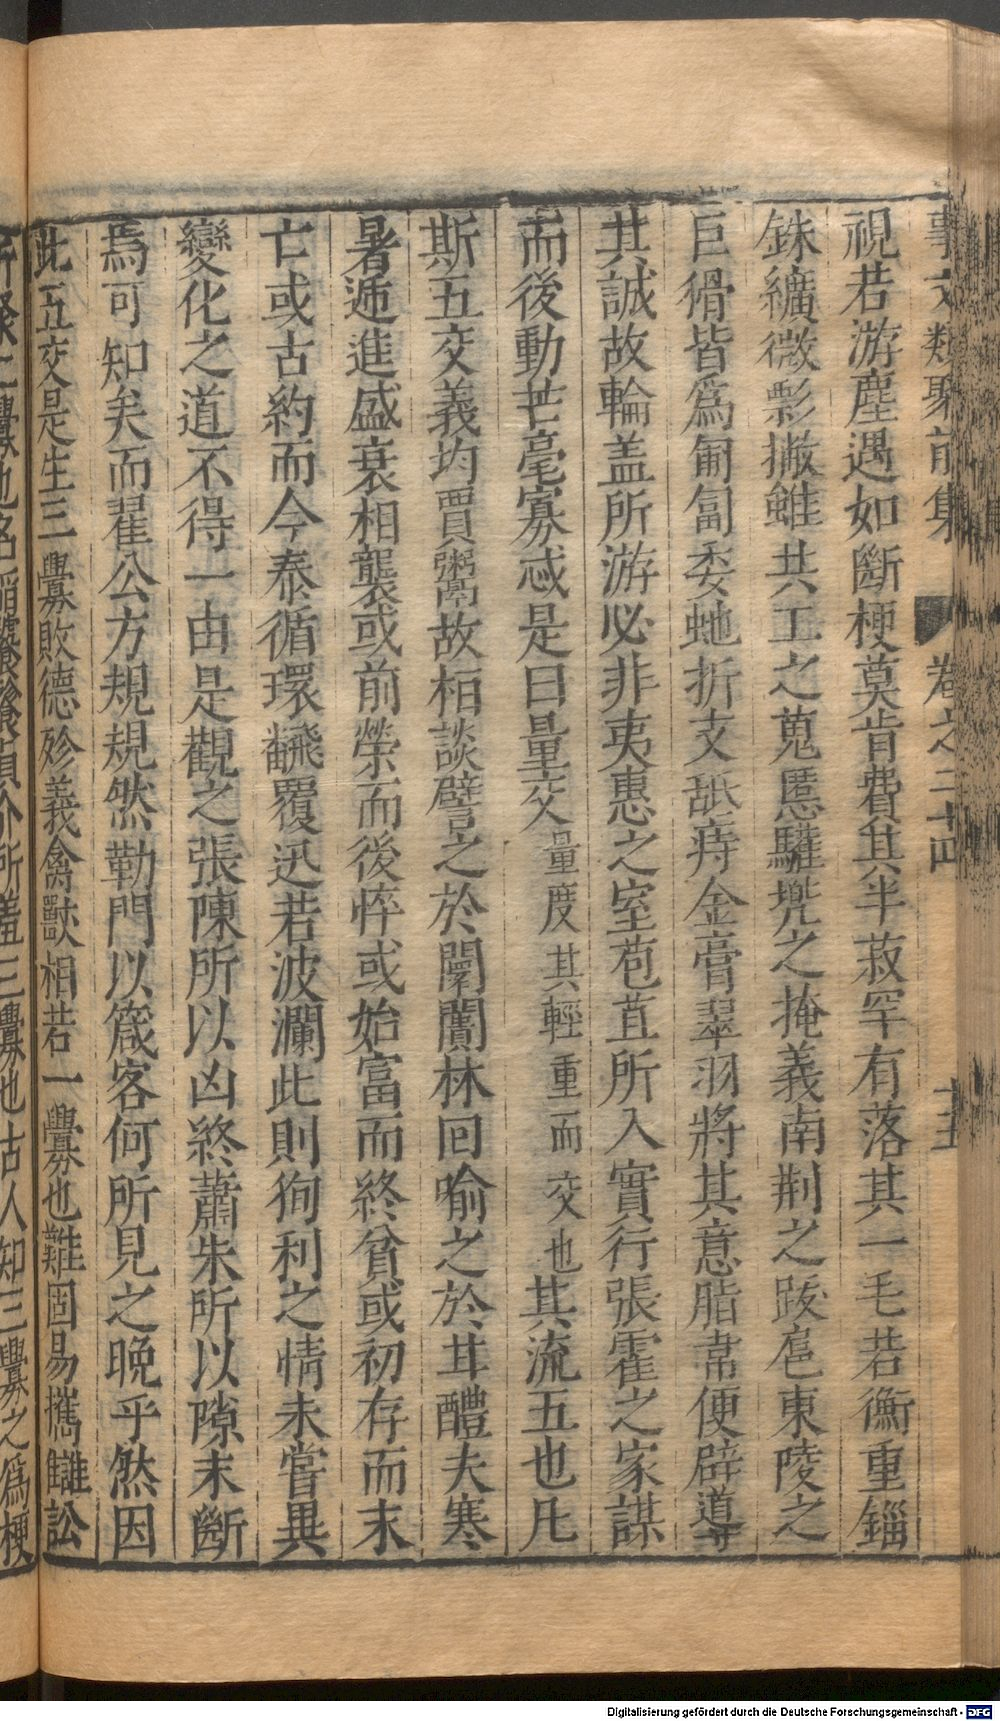 事文類聚前集 卷之二十四 十五
視若游塵遇如斷梗莫肯費其半菽罕有落其一毛若衡重錙
銖纊微影撇雖共工之蒐慝驩兜之掩義南荆之跋扈東陵之
巨猾皆爲匍匐委虵折支舐痔金膏翠羽將其意脂韋便辟導
其誠故輪盖所游必非夷惠之室苞苴所入實行張霍之家謀
而後動芒毫寡忒是曰量交量度其輕重而交也其流五也凡
斯五交義均賈鬻故桓談譬之於闤闠林回喻之於甘醴夫寒
暑逓進盛衰相襲或前榮而後悴或始富而終貧或初存而末
亡或古約而今泰循環飜覆迅若波瀾此則徇利之情未嘗異
變化之道不得一由是觀之張陳所以凶終蕭朱所以隙末斷
焉可知矣而翟公方規規然勒門以箴客何所見之晚乎然因
此五交是生三釁敗德殄義禽獸相若一釁也難固易攜讎訟
所聚二釁也名陷饕餮貞介所羞三釁也古人知三釁之爲梗
Digitalisierung gefördert durch die Deutsche Forschungsgemeinschaft - DFG